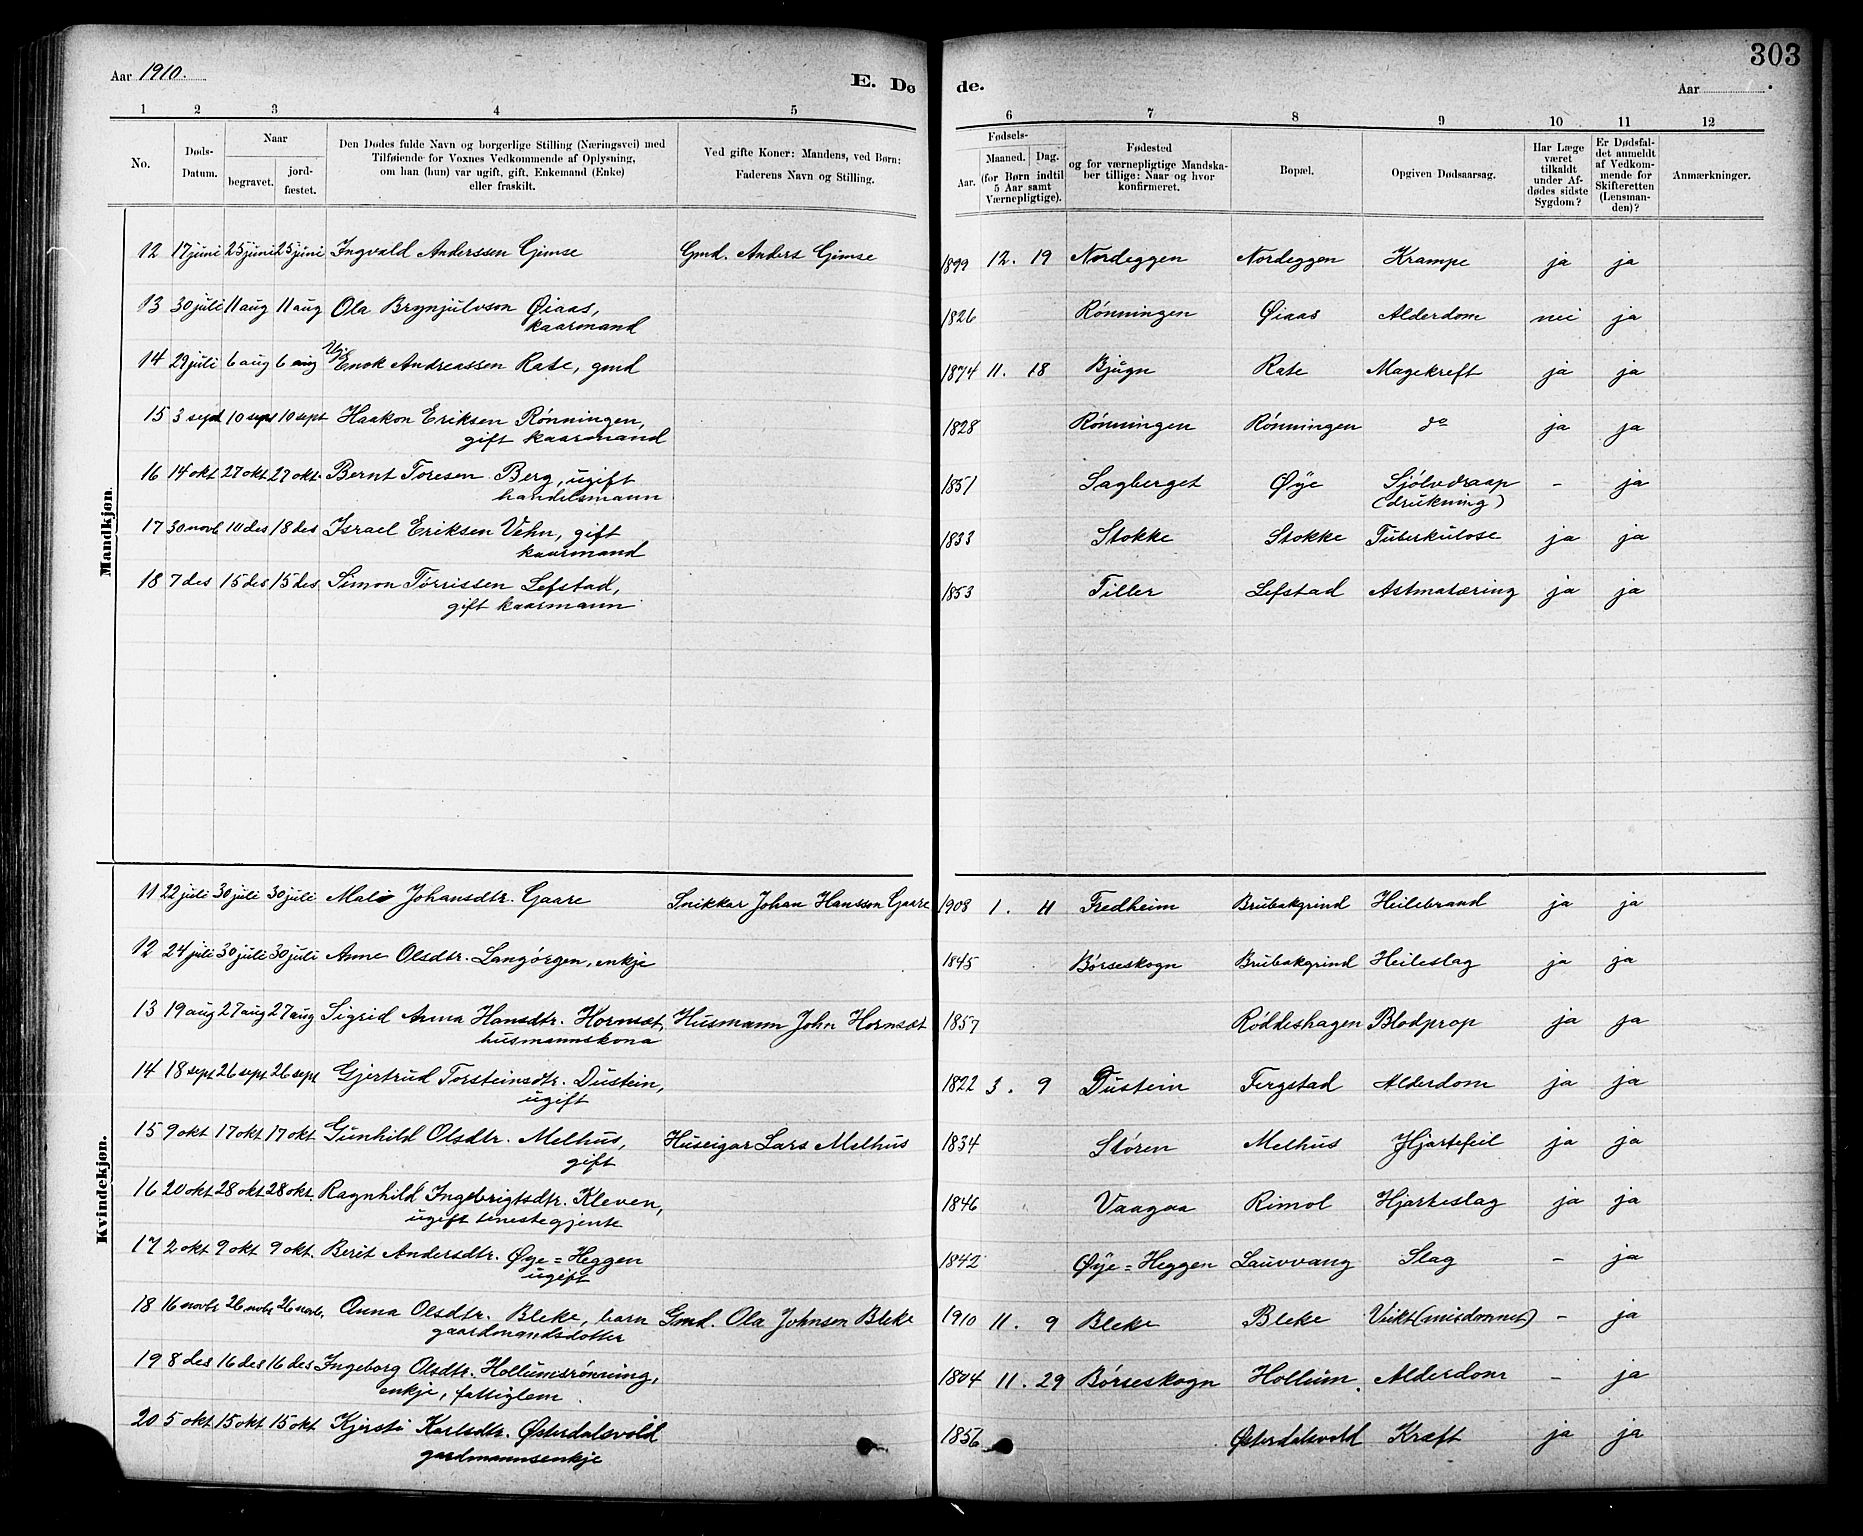 303
Aar 1910. E. Dø de. Aar
1 2 3 4 5 6 7 8 9 10 11 12
No.
Døds-
Datum.
Naar
begravet.
jord-
fæstet.
Den Dødes fulde Navn og borgerlige Stilling (Næringsvei) med
Tilføiende for Voxnes Vedkommende af Oplysning,
om han (hun) var ugift, gift, Enkemand (Enke)
eller fraskilt.
Ved gifte Koner: Mandens, ved Børn:
Faderens Navn og Stilling.
Fødsels-
Aar.
Maaned.
Dag.
(for Børn indtil
5 Aar samt
Værnepligtige).
Fødested
og for værnepligtige Mandska-
ber tillige: Naar og hvor
konfirmeret.
Bopæl.
Opgiven Dødsaarsag.
Har Læge
været
tilkaldt
under Af-
dødes sidste
Sygdom?
Er Dødsfal-
det anmeldt
af Vedkom-
mende for
Skifteretten
(Lensman-
den)?
Anmærkninger.
Mandkjøn.
12 17 juni 25 juni 25 juni Ingvald Anderssen Gimse Gmd. Anders Gimse 1899 12. 19 Nordeggen Nordeggen Krampe ja ja
13 30 juli 11 aug 11 aug Ola Brynjulvson Øiaas, 1826 Rønningen Øiaas Alderdom nei ja
kaarmand
14 29 juli 6 aug 6 aug Ugi. Enok Andreassen Rate, gmd 1874 11. 18 Bjugn Rate Magekreft ja ja
15 3 sept 10 sept 10 sept Haakon Eriksen Rønningen, 1828 Rønningen Rønningen do ja ja
gift kaarmand
16 14 okt 27 okt 27 okt. Bernt Toresen Berg, ugift 1851 Sagberget Øye Sjølvdraap - ja
handelsmann (drukning)
17 30 novb 10 des 18 des Israel Eriksen Vehn, gift 1833 Stokke Stokke Tuberkulose ja ja
kaarmand
18 7 des 15 des 15 des Simon Tørrissen Lefstad, 1853 Tiller Lefstad Astmatæring ja ja
gift kaarmann
Kvindekjøn.
11 22 juli 30 juli 30 juli Mali Johansdtr. Gaare Snikkar Johan Hansson Gaare 1908 1. 11 Fredheim Brubakgrind Heilebrand ja ja
12 24 juli 30 juli 30 juli Anne Olsdtr. Langørgen, enkje 1845 Børseskogn Brubakgrind Heileslag ja ja
13 19 aug 27 aug 27 aug Sigrid Anna Hansdtr. Hornsæt, Husmann John Hornsæt 1857 Røddeshagen Blodprop ja ja
husmannskona
14 18 sept 26 sept 26 sept Gjertrud Torsteinsdtr. Dustein, 1822 3. 9 Dustein Fergstad Alderdom ja ja
ugift
15 9 okt 17 okt 17 okt Gunhild Olsdtr. Melhus, Huseigar Lars Melhus 1834 Støren Melhus Hjartefeil ja ja
gift
16 20 okt 28 okt 28 okt. Ragnhild Ingebrigtsdtr. Kleven, 1846 Vaagaa Rimol Hjarteslag ja ja
ugift tenestegjente
17 2 okt 9 okt 9 okt. Berit Andersdtr. Øye=Heggen 1842 Øye=Heggen Lauvvang Slag - ja
ugift
18 16 novbr 26 novbr 26 novbr. Anna Olsdtr. Bleke, barn Gmd. Ola Johnsen Bleke 1910 11. 9 Bleke Bleke Veikt (misdannet) - ja
gaardmandsdotter
19 8 des 16 des 16 des Ingeborg Olsdtr. Hollumsrønning, 1804 11. 29 Børseskogn Hollum Alderdom - ja
enkje, fattiglem
20 5 okt 15 okt 15 okt Kjersti Karlsdtr. Østerdalsvold 1856 Østerdalsvold Kræft ja ja
gardmannsenkje